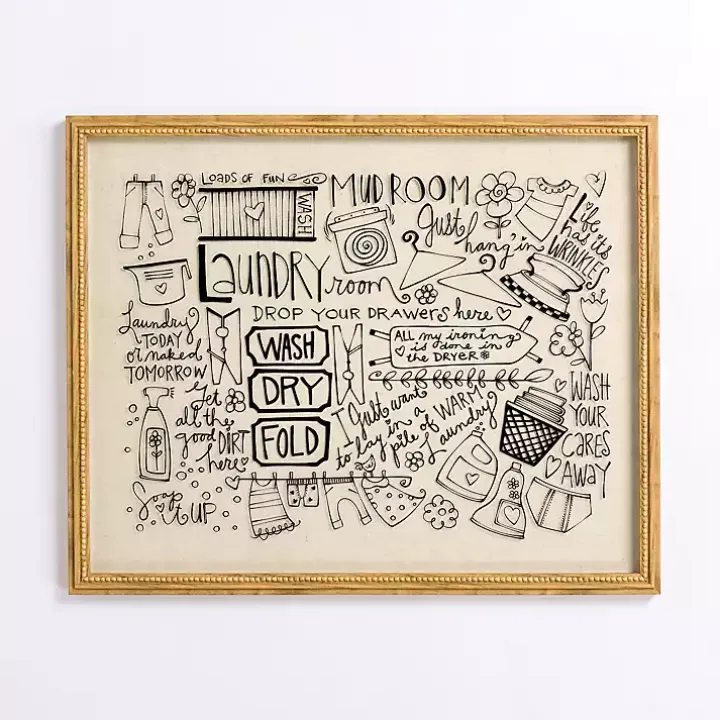 LOADS OF FUN
WASH
MUDROOM
Just
hang'in
Life
has its
WRINKLES
LAUNDRY room
DROP YOUR DRAWERS here
Laundry
TODAY
or naked
TOMORROW
WASH
DRY
FOLD
ALL my ironing
is done in
the DRYER
Get
all the
good DIRT
here
I Just want
to lay in a
pile of WARM
Laundry
WASH
YOUR
CARES
AWAY
Soap
it UP